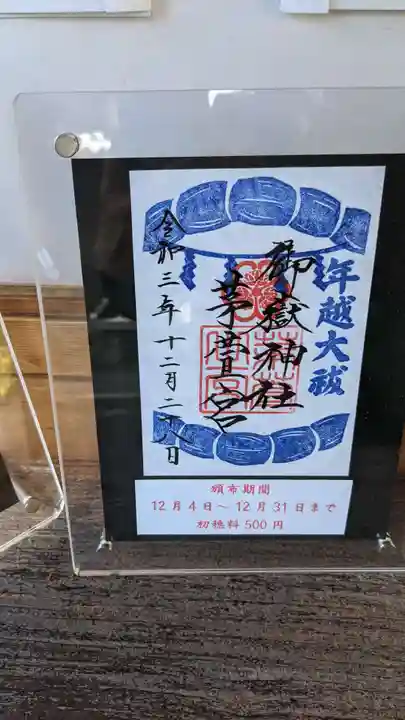 年越大祓
御嶽神社
茅萱宮
令和三年十二月二八日
頒布期間
12月4日～12月31日まで
初穂料500円